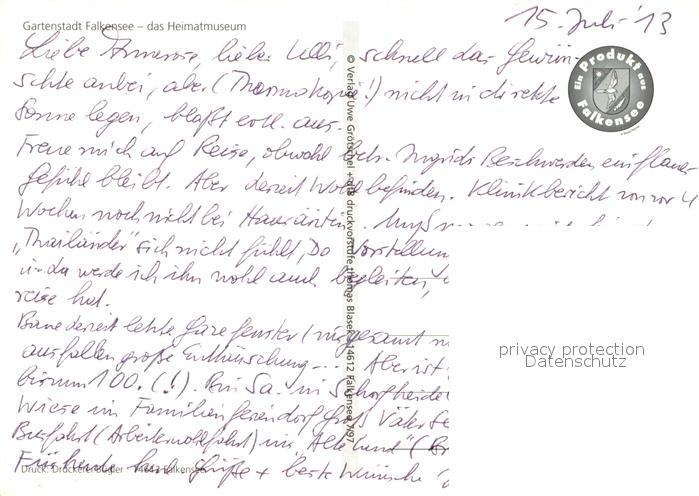 Gartenstadt Falkensee – das Heimatmuseum
15. Juli '13
Liebe Annerose, lieber Ulli, schnell das Gewün-
schte anbei, aber (Thermokopie!) nicht in direkte
Sonne legen, blaßt evtl. aus.
Freue mich auf Reise, obwohl Ingrids Beschwerden ein flaues
Gefühl bleibt. Aber derzeit Wohlbefinden. Klinikbericht von vor 4
Wochen noch nicht bei Hausärztin. Muß
"Thailänder" sich nicht fühlt, Do Vorstellung
u. da werde ich ihn wohl auch begleiten,
reise hat.
Baue derzeit letzte Gazefenster / insgesamt
ausfallen große Enttäuschung... Aber ist
bis zum 100. (!). Bin Sa. in Schorfheide
Wiese im Familienferiendorf Groß Väter See
Busfahrt (Arbeiterwohlfahrt) ins "Alte Land" (
Für heute herzl. Grüße + beste Wünsche
© Verlag Uwe Grötschel + e/tb druckvorstufe thomas Blasek 14612 Falkensee 7/97
Ein Produkt aus
Falkensee
Druck: Druckerei Bugler 14612 Falkensee
privacy protection
Datenschutz